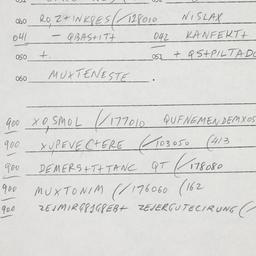 040 RO,Z+INKQES(/128010 NISLAX
041 - QBASTIT+ 042 KANFEKT+
050 +. 052 + QS+PILTADO
060 MUXTENESTE.
900 XO,SMOL (/177010 QUFNEMENDEMXOS
900 XUPEVEC+ERE (/103050 (413
900 DEMERS+T+TANC QT (/178080
900 MUXTONIM (/176060 (162
900 ZEJERGUTECIRUNG (/